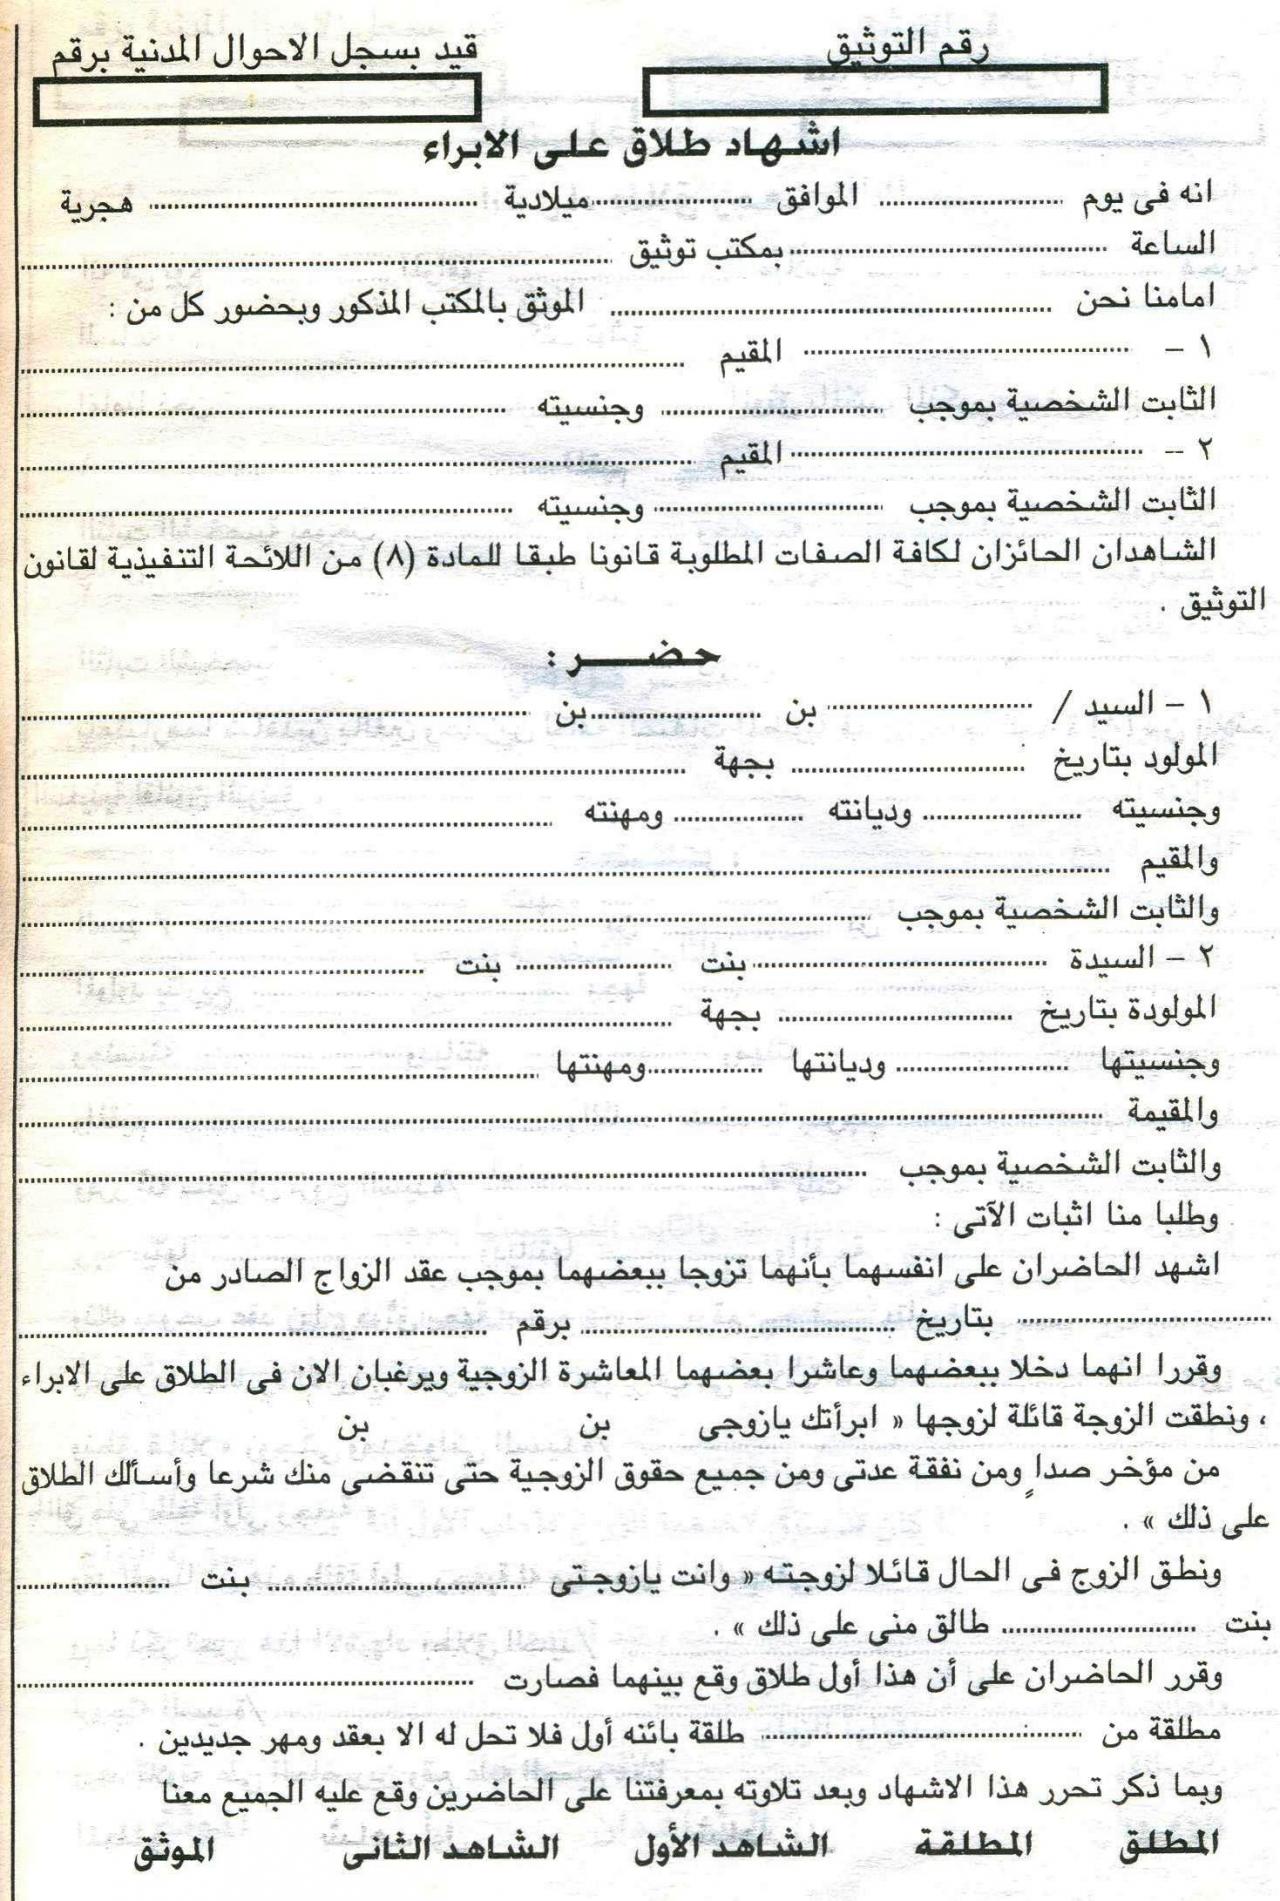 رقم التوثيق
قيد بسجل الاحوال المدنية برقم
اشهاد طلاق على الابراء
انه فى يوم ............ الموافق ............ ميلادية ............ هجرية
الساعة ............ بمكتب توثيق ............
امامنا نحن ............ الموثق بالمكتب المذكور وبحضور كل من :
١ – ............ المقيم ............
الثابت الشخصية بموجب ............ وجنسيته ............
٢ – ............ المقيم ............
الثابت الشخصية بموجب ............ وجنسيته ............
الشاهدان الحائزان لكافة الصفات المطلوبة قانونا طبقا للمادة (٨) من اللائحة التنفيذية لقانون
التوثيق .
حضـــر :
١ – السيد / ............ بن ............ بن ............
المولود بتاريخ ............ بجهة ............
وجنسيته ............ وديانته ............ ومهنته ............
والمقيم ............
والثابت الشخصية بموجب ............
٢ – السيدة ............ بنت ............ بنت ............
المولودة بتاريخ ............ بجهة ............
وجنسيتها ............ وديانتها ............ ومهنتها ............
والمقيمة ............
والثابت الشخصية بموجب ............
وطلبا منا اثبات الآتى :
اشهد الحاضران على انفسهما بأنهما تزوجا ببعضهما بموجب عقد الزواج الصادر من
............ بتاريخ ............ برقم ............
وقررا انهما دخلا ببعضهما وعاشرا بعضهما المعاشرة الزوجية ويرغبان الان فى الطلاق على الابراء
، ونطقت الزوجة قائلة لزوجها « ابرأتك يازوجى بن بن
من مؤخر صداٍ ومن نفقة عدتى ومن جميع حقوق الزوجية حتى تنقضى منك شرعا وأسألك الطلاق
على ذلك » .
ونطق الزوج فى الحال قائلا لزوجته « وانت يازوجتى ............ بنت ............
بنت ............ طالق منى على ذلك » .
وقرر الحاضران على أن هذا أول طلاق وقع بينهما فصارت ............
مطلقة من ............ طلقة بائنه أول فلا تحل له الا بعقد ومهر جديدين .
وبما ذكر تحرر هذا الاشهاد وبعد تلاوته بمعرفتنا على الحاضرين وقع عليه الجميع معنا
المطلق المطلقة الشاهد الأول الشاهد الثانى الموثق